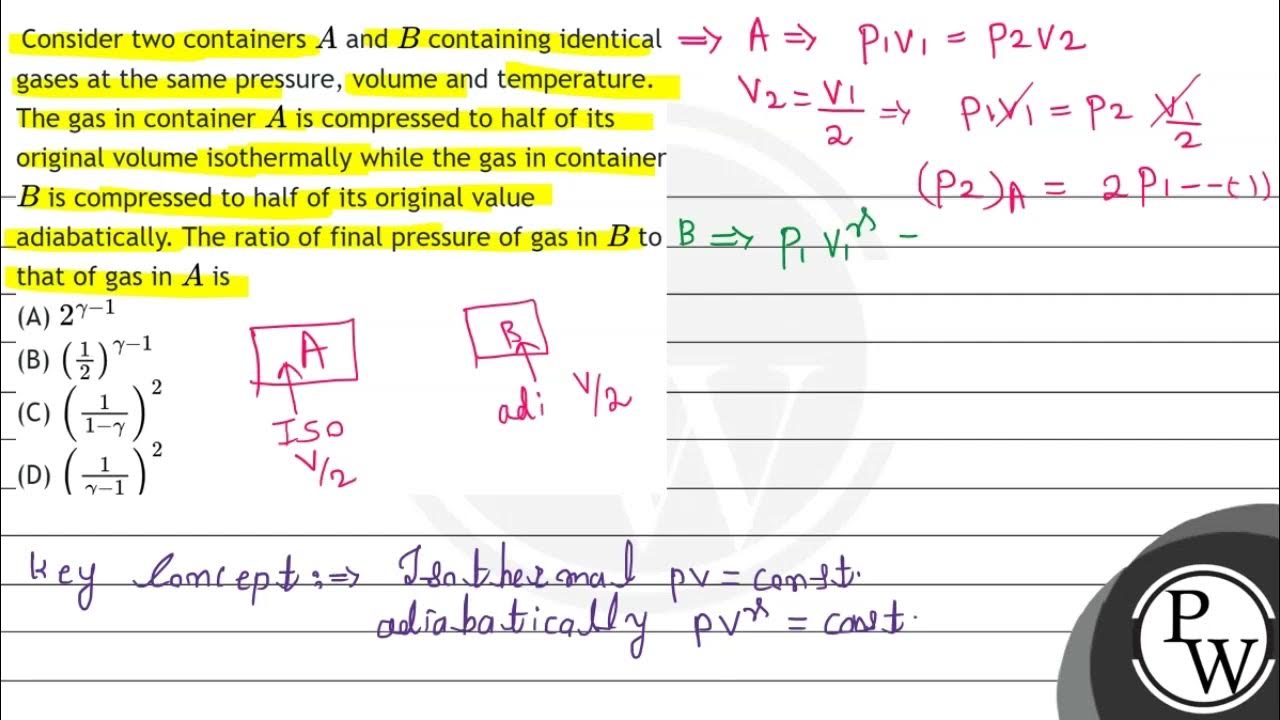 Consider two containers A and B containing identical
gases at the same pressure, volume and temperature.
The gas in container A is compressed to half of its
original volume isothermally while the gas in container
B is compressed to half of its original value
adiabatically. The ratio of final pressure of gas in B to
that of gas in A is
(A) 2^{γ−1}
(B) (1/2)^{γ−1}
(C) (1/(1−γ))^2
(D) (1/(γ−1))^2
A
ISO
V/2
B
adi V/2
⇒ A ⇒ P1V1 = P2V2
V2 = V1/2 ⇒ P1V1 = P2 V1/2
(P2)A = 2P1 --(1)
B ⇒ P1 V1^γ =
Key Concept :⇒ Isothermal PV = const.
adiabatically PV^γ = const.
PW